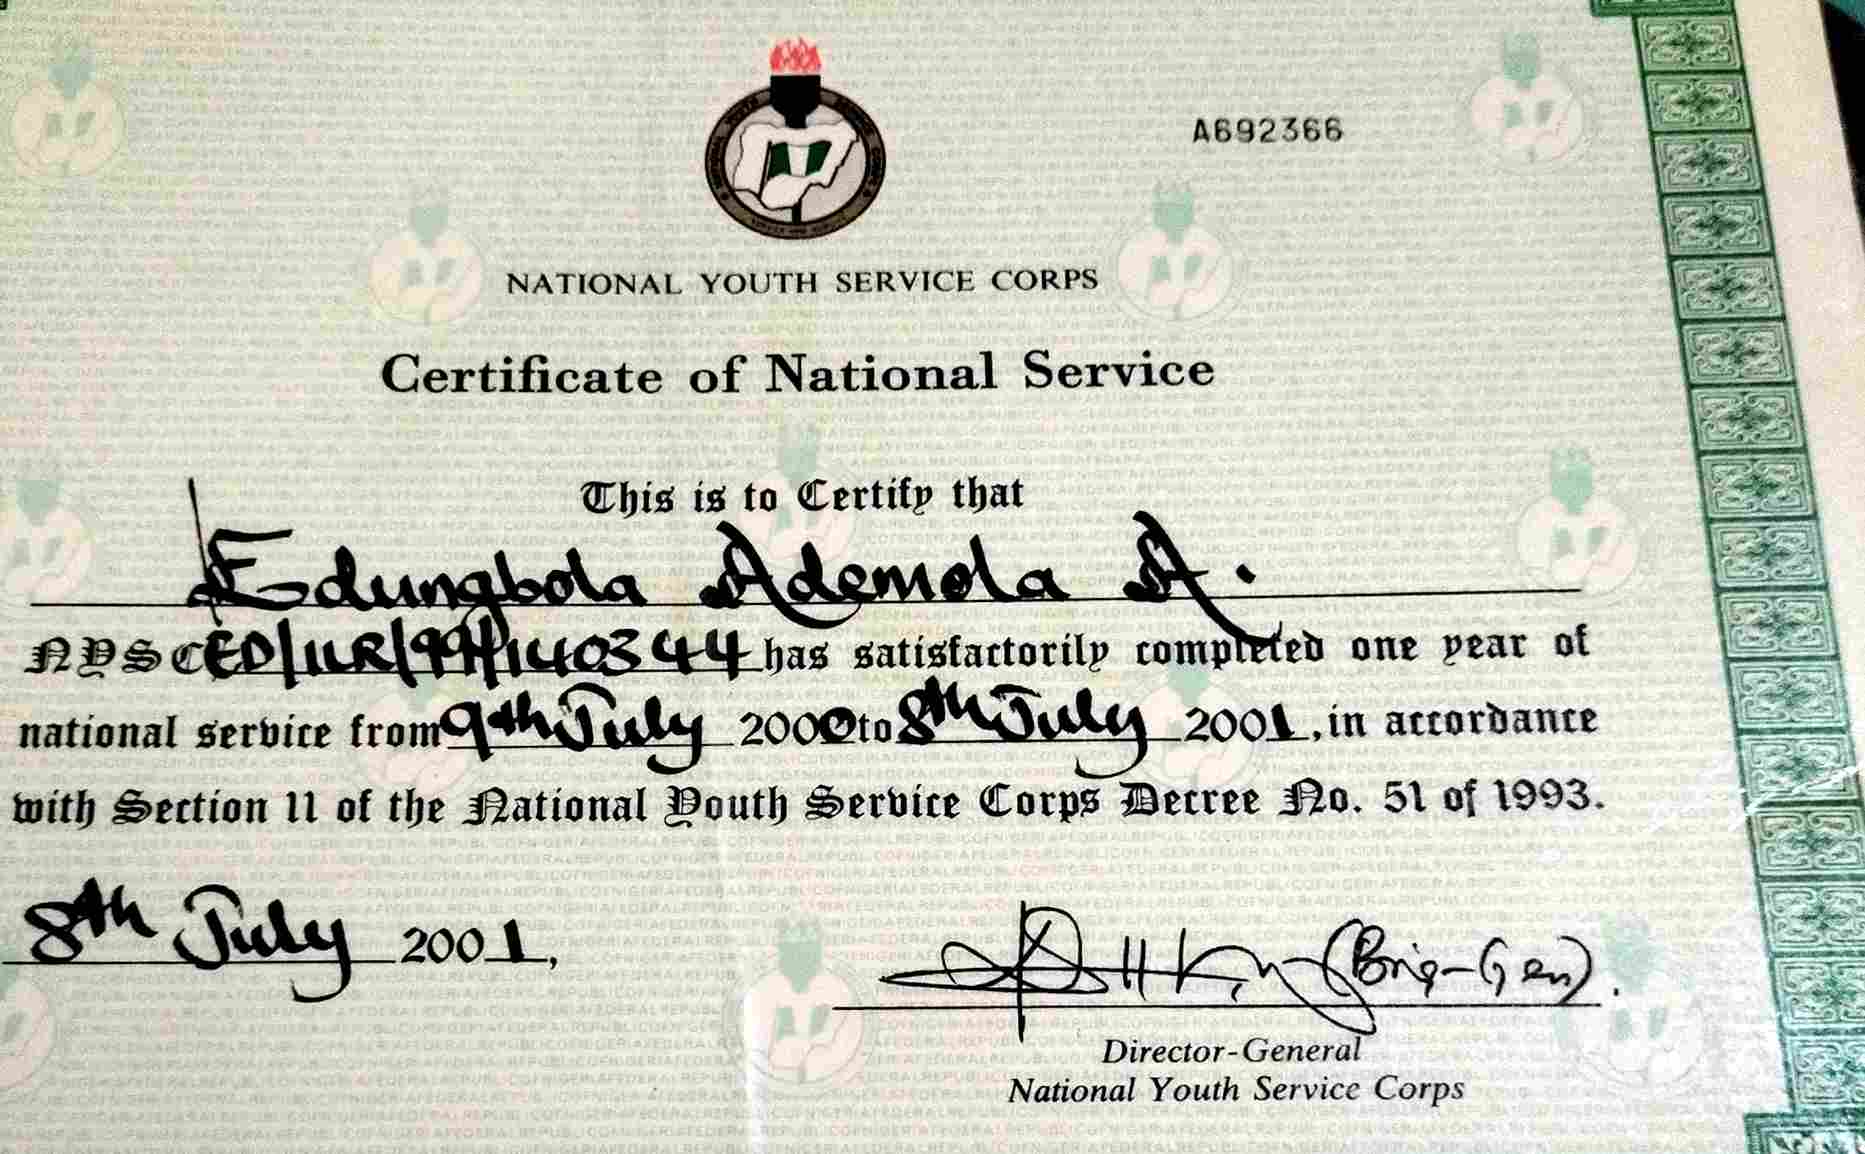 A692366
NATIONAL YOUTH SERVICE CORPS
Certificate of National Service
This is to Certify that
Edungbola Ademola A.
NYSC ED/ILR/99/140344 has satisfactorily completed one year of
national service from 9th July 2000 to 8th July 2001, in accordance
with Section 11 of the National Youth Service Corps Decree No. 51 of 1993.
8th July 2001,
(Brig-Gen).
Director-General
National Youth Service Corps